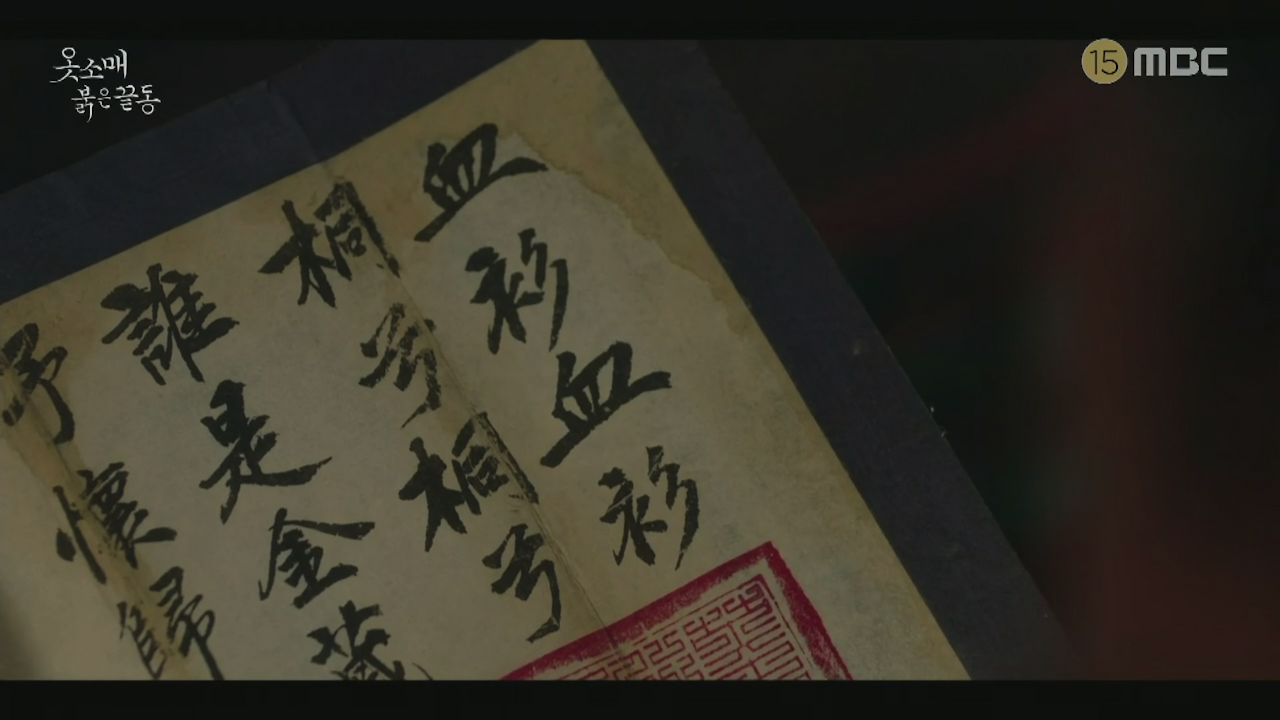 옷소매
붉은끝동
15 MBC
血衫血衫
桐兮桐兮
誰是金藏
予懷歸